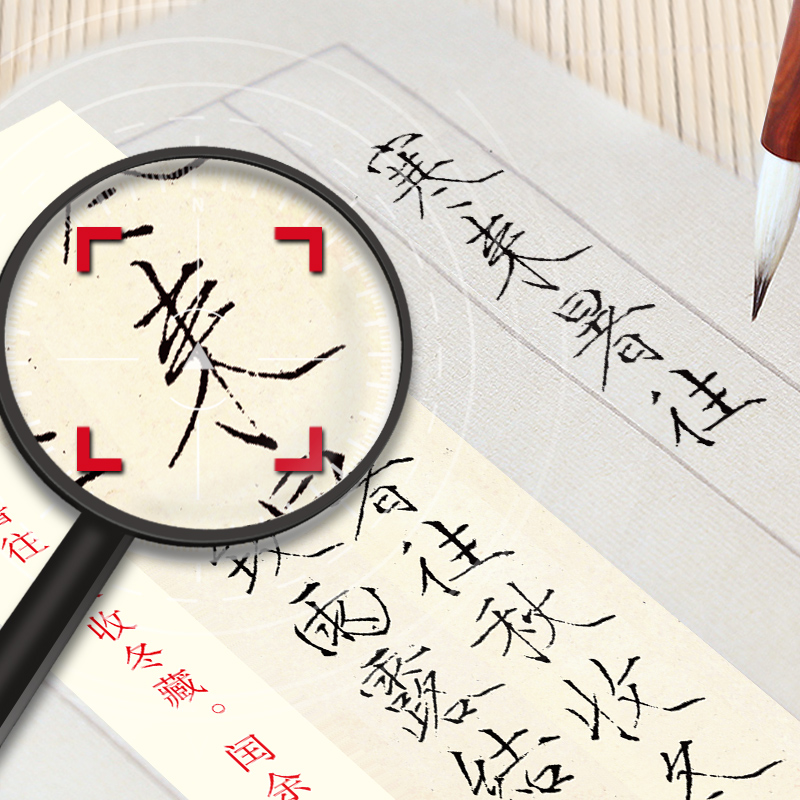 寒来暑往
来
暑往秋收冬
致雨露结
暑往
收冬藏。闰余